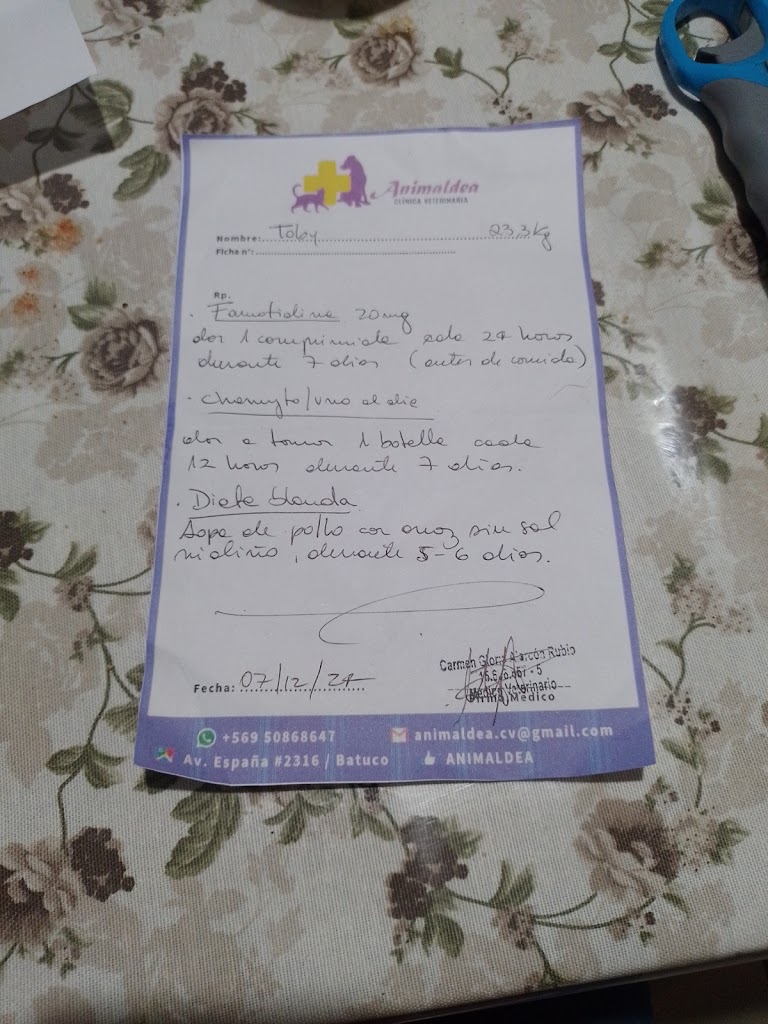 Animaldea
CLÍNICA VETERINARIA
Nombre: Toby 23,3 Kg
Ficha nº:
Rp.
· Famotidina 20 mg
dar 1 comprimido cada 24 horas
durante 7 días (antes de comida)
· Chamyto/uno al día
dar a tomar 1 botella cada
12 horas durante 7 días.
· Dieta blanda
Sopa de pollo con arroz sin sal
ni aliño, durante 5-6 días.
Fecha: 07/12/24
Carmen Gloria Alarcón Rubio
Médico Veterinario
Firma Médico
+569 50868647 animaldea.cv@gmail.com
Av. España #2316 / Batuco ANIMALDEA